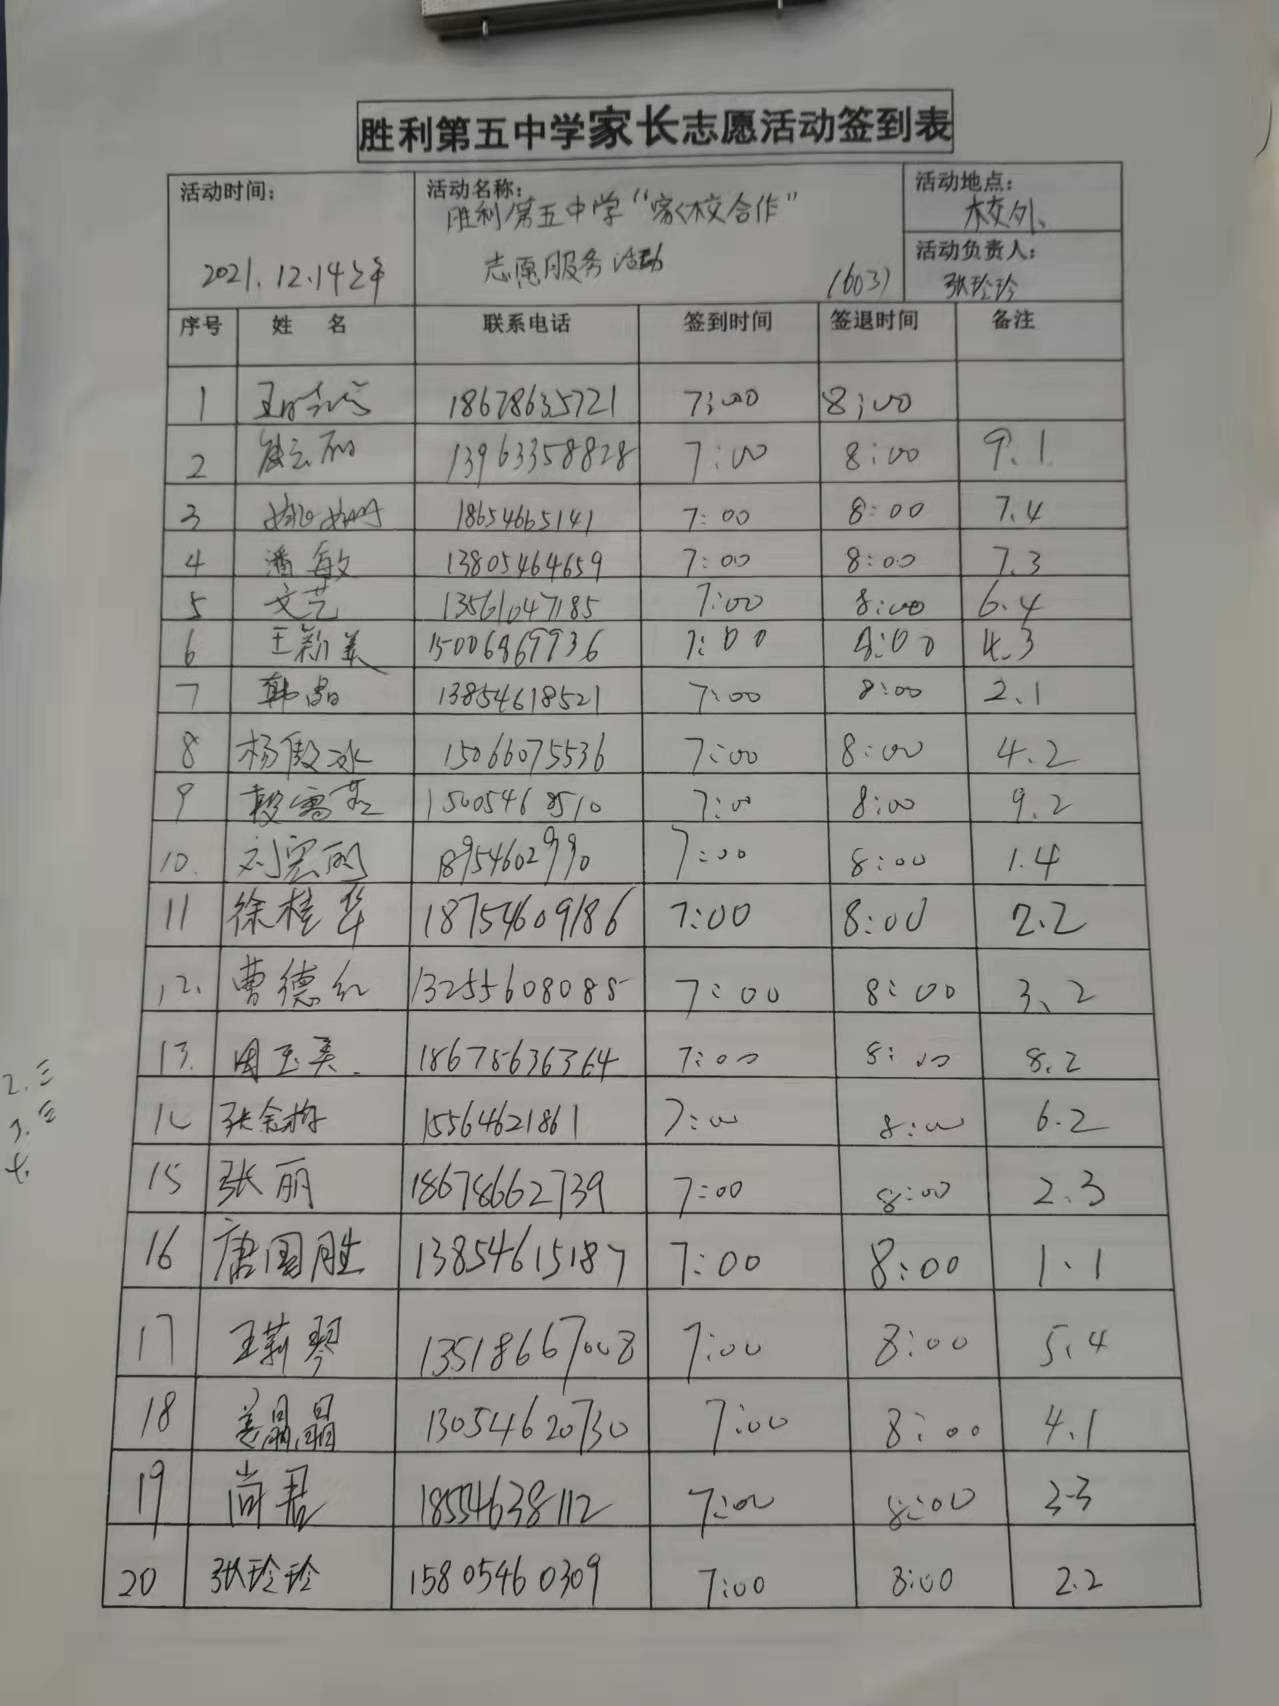 胜利第五中学家长志愿活动签到表
活动时间: 2021.12.14上午
活动名称: 胜利第五中学“家校合作”
志愿服务活动 (603)
活动地点: 校外
活动负责人: 张玲玲
序号 姓名 联系电话 签到时间 签退时间 备注
1 18678635721 7:00 8:00
2 13963358828 7:00 8:00 9.1
3 18654665141 7:00 8:00 7.4
4 潘敏 13805464659 7:00 8:00 7.3
5 文艺 13561047185 7:00 8:00 6.4
6 王新美 15006869936 7:00 8:00 4.3
7 韩晶 13854618521 7:00 8:00 2.1
8 杨傲冰 15066075536 7:00 8:00 4.2
9 15005468510 7:00 8:00 9.2
10. 刘宏丽 18954602990 7:00 8:00 1.4
11 徐桂华 18754609186 7:00 8:00 2.2
12. 曹德红 13255608088 7:00 8:00 3.2
13. 周玉美. 18678636364 7:00 8:00 8.2
14 15564621861 7:00 8:00 6.2
15 张丽 18678662739 7:00 8:00 2.3
16 唐国胜 13854615187 7:00 8:00 1.1
17 王莉琴 13518667008 7:00 8:00 5.4
18 姜晶晶 13054620730 7:00 8:00 4.1
19 尚君 18554638112 7:00 8:00 3.3
20 张玲玲 15805460309 7:00 8:00 2.2
2.三
3.三